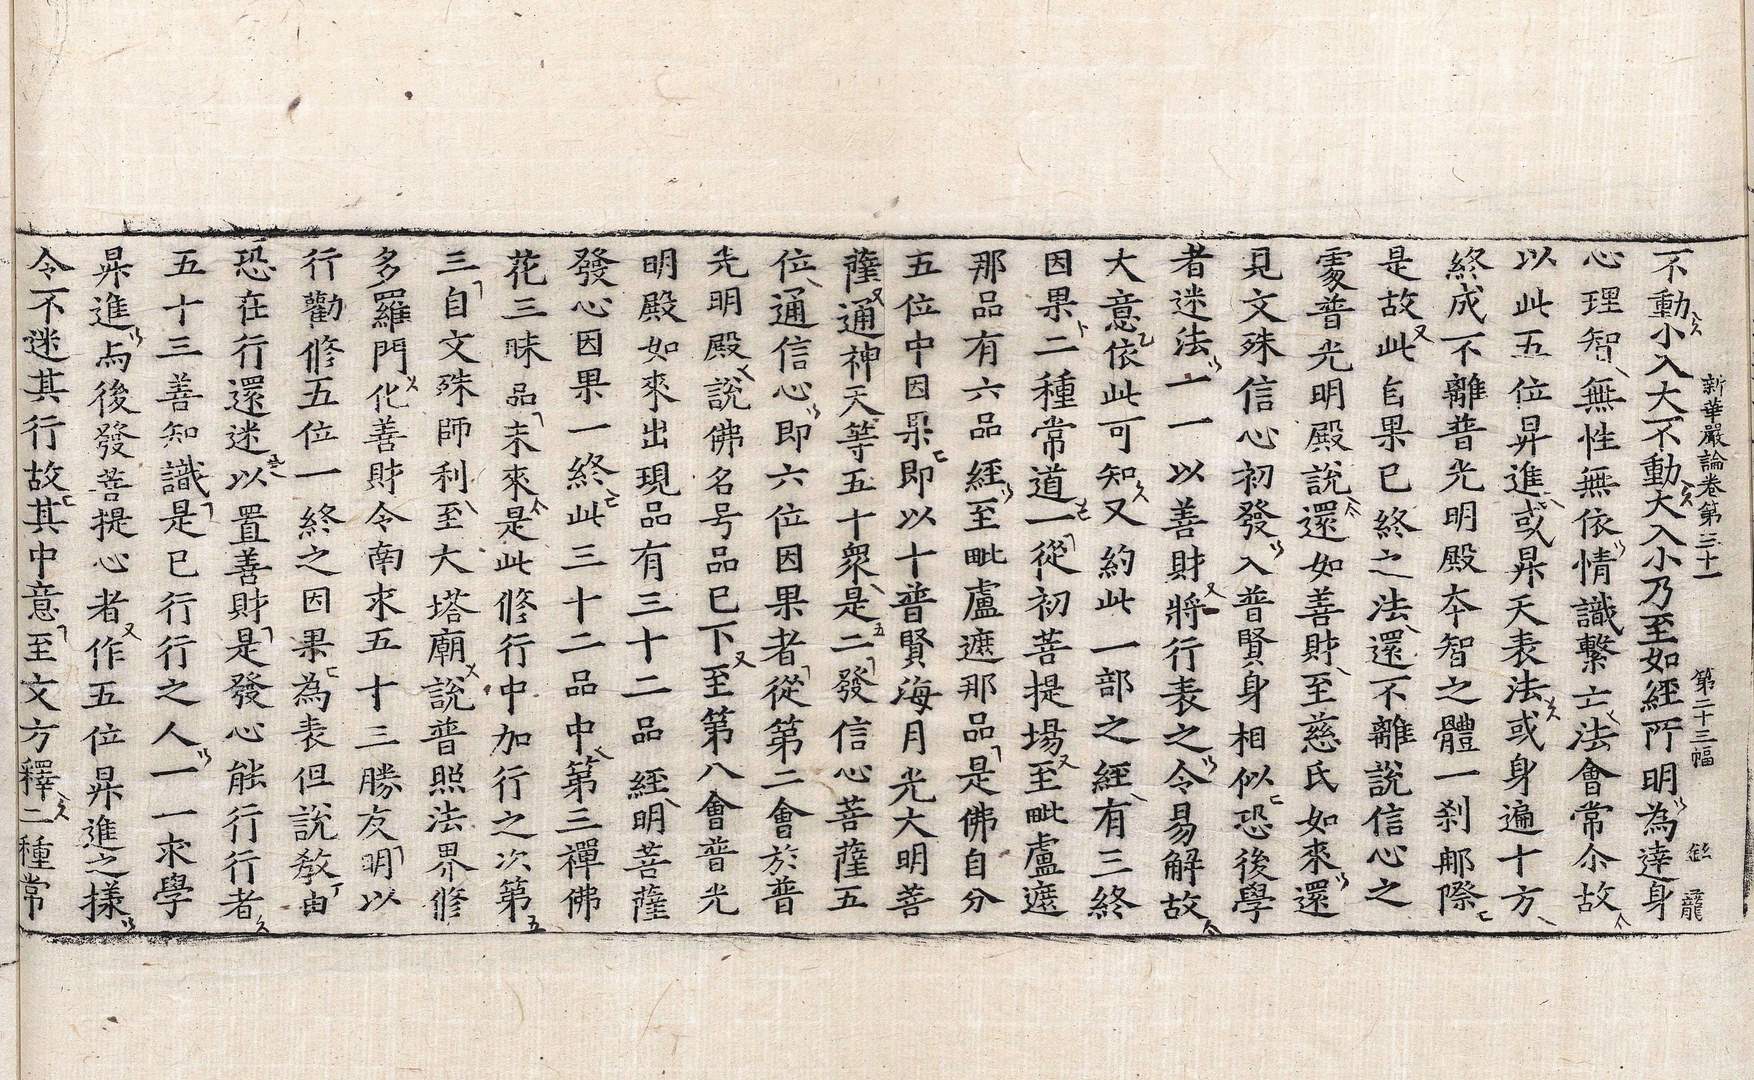 新華嚴論卷第三十一 第二十三幅 絲 龍
不動小入大不動大入小乃至如經所明為達身
心理智無性無依情識繫亡法會常尒故
以此五位昇進或昇天表法或身遍十方
終成不離普光明殿本智之體一剎那際
是故此自果已終之法還不離說信心之
處普光明殿說還如善財至慈氏如來還
見文殊信心初發入普賢身相似恐後學
者迷法一一以善財將行表之令易解故
大意依此可知又約此一部之經有三終
因果二種常道一從初菩提場至毗盧遮
那品有六品經至毗盧遮那品是佛自分
五位中因果即以十普賢海月光大明菩
薩通神天等五十衆是二發信心菩薩五
位通信心即六位因果者從第二會於普
光明殿說佛名号品已下至第八會普光
明殿如來出現品有三十二品經明菩薩
發心因果一終此三十二品中第三禪佛
花三昧品未來是此修行中加行之次第
三自文殊師利至大塔廟說普照法界修
多羅門化善財令南求五十三勝友明以
行勸修五位一終之因果為表但說教由
恐在行還迷以置善財是發心能行行者
五十三善知識是已行行之人一一求學
昇進与後發菩提心者作五位昇進之樣
令不迷其行故其中意至文方釋二種常